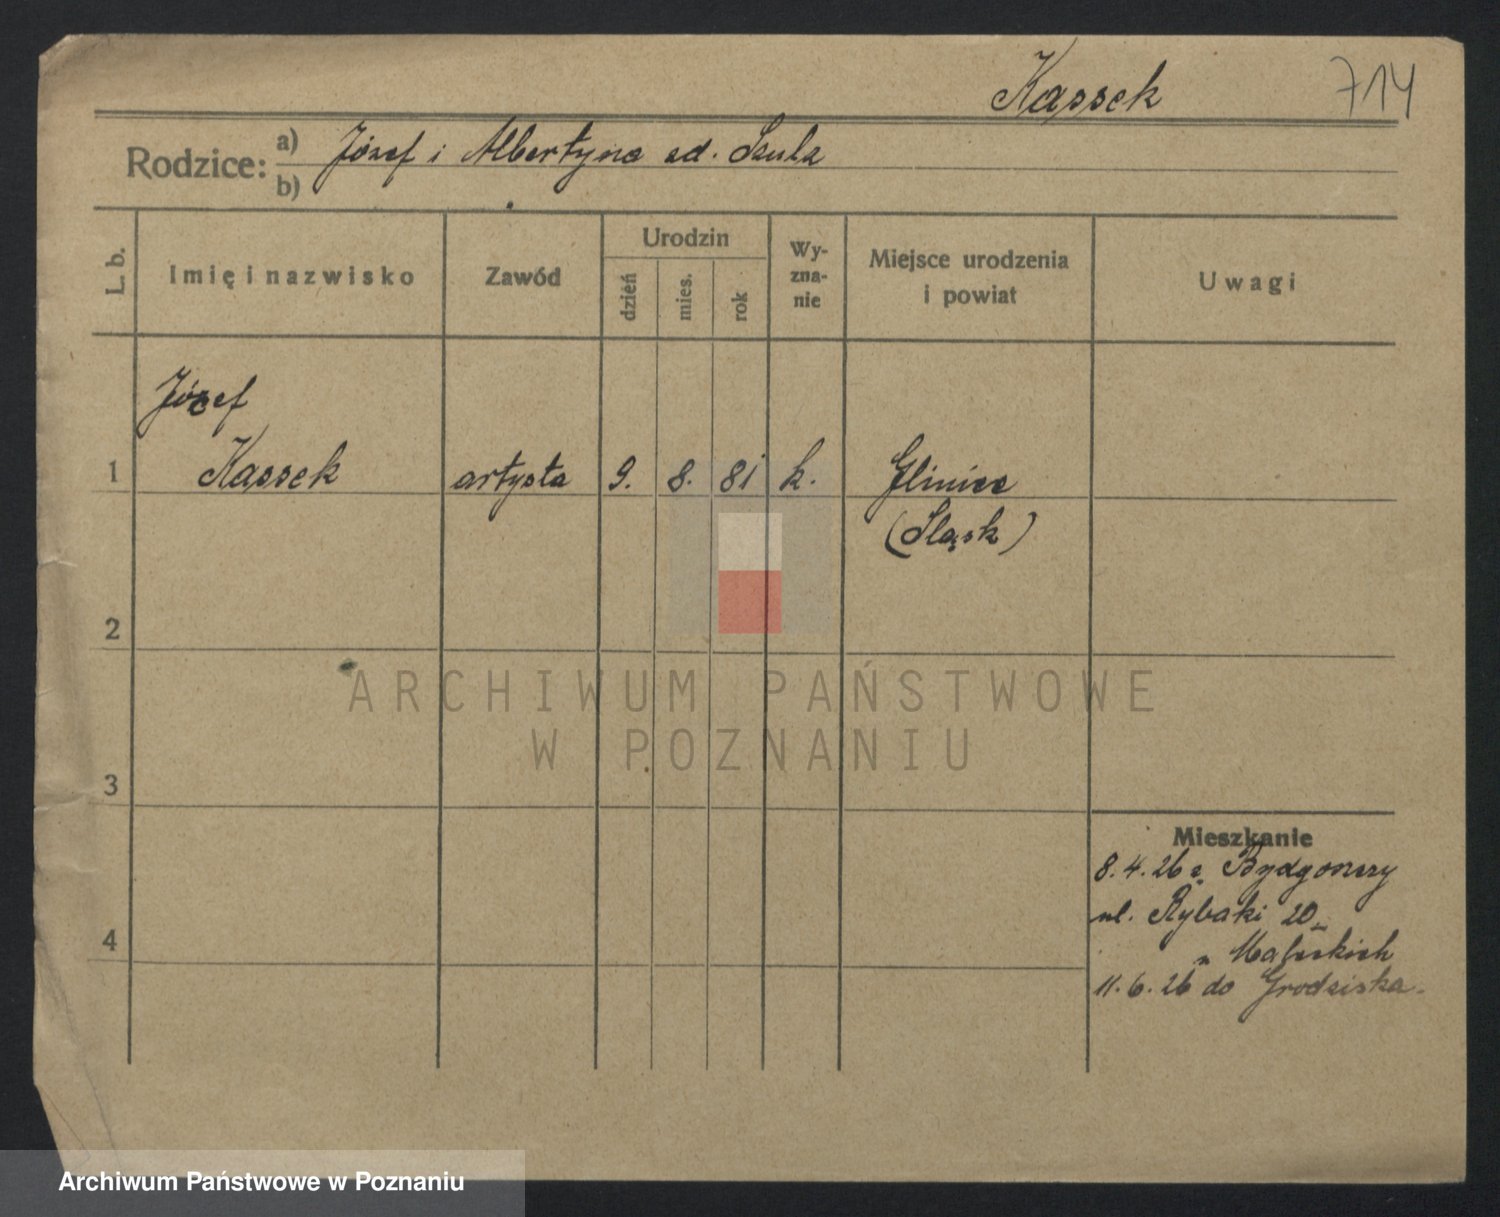 Kassek 714
Rodzice: a) Józef i Albertyna zd. Szulz
b)
L. b. Imię i nazwisko Zawód Urodzin dzień mies. rok Wyznanie Miejsce urodzenia i powiat Uwagi
Józef
1 Kassek artysta 9. 8. 81 k. Gliwice
(Śląsk)
2
ARCHIWUM PAŃSTWOWE
W POZNANIU
3
Mieszkanie
8.4.26 z Bydgoszczy
ul. Rybaki 20
4
11.6.26 do Grodziska.
Archiwum Państwowe w Poznaniu